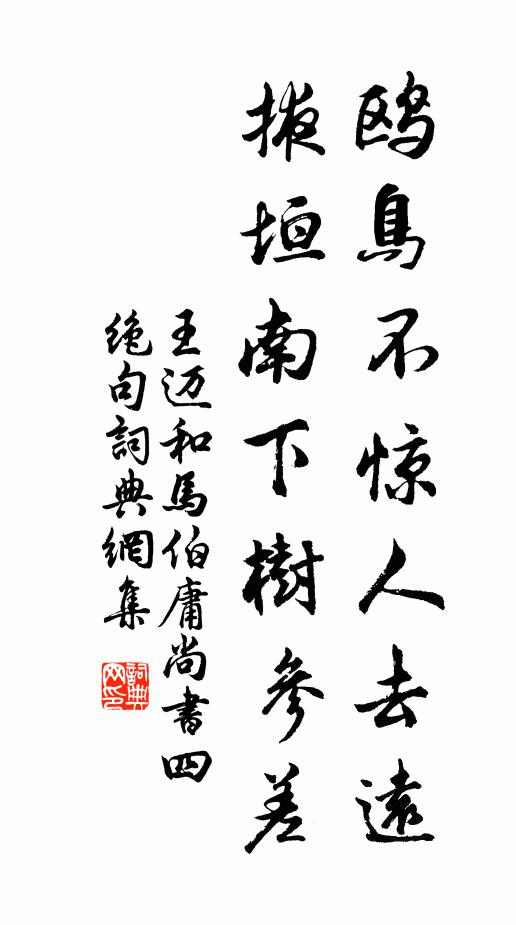 鸥鳥不惊人去遠
掖垣南下樹參差
王迈和馬伯庸尚書四
绝句詞典網集
詞典网印